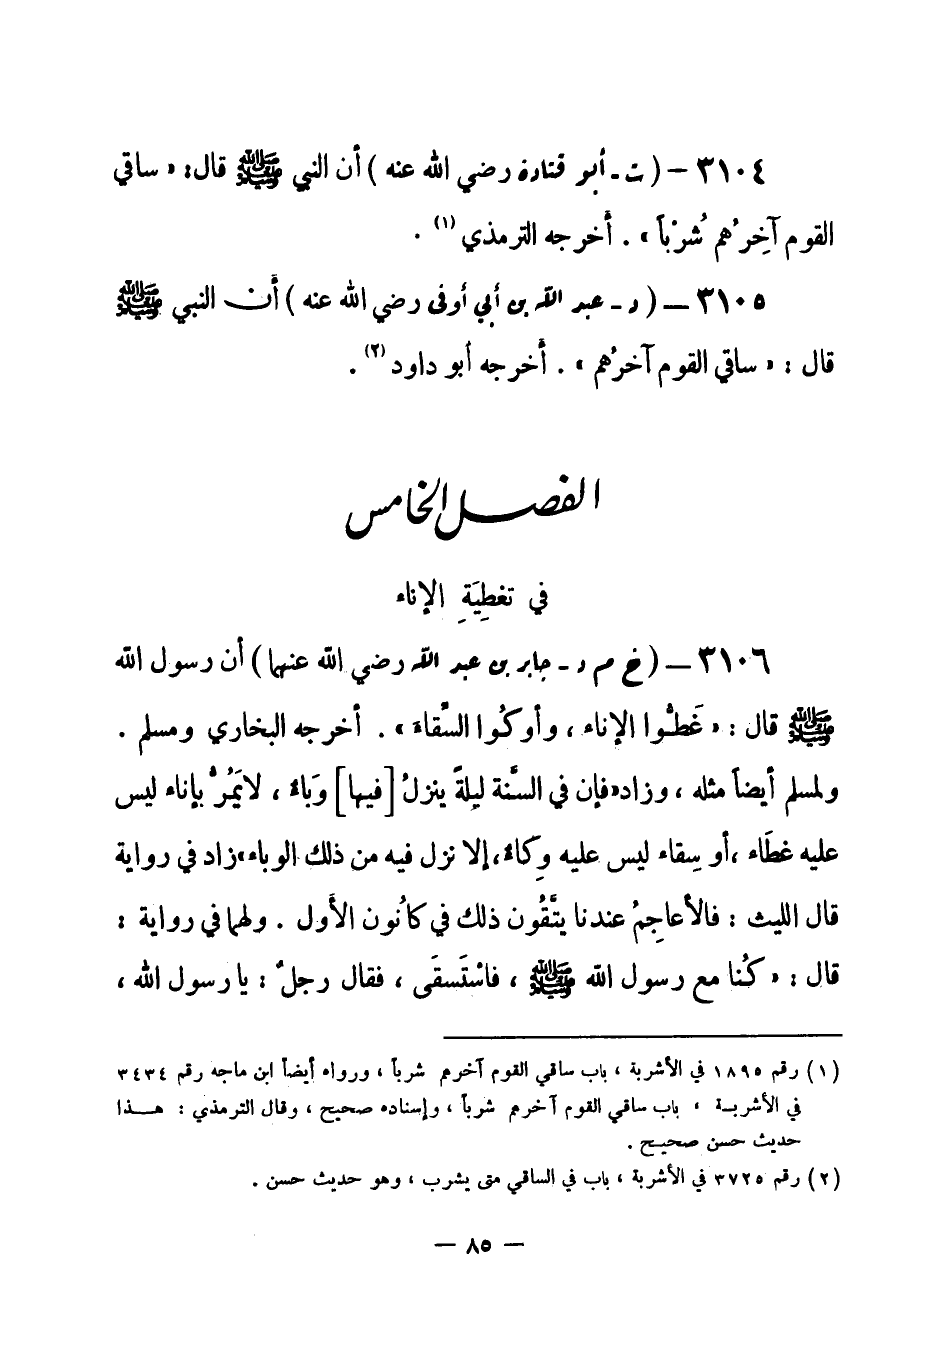 ٣١٠٤ – ( ت - أبو قتادة رضي الله عنه ) أن النبي ﷺ قال: « ساقي
القوم آخِرُهم شُرْباً » . أخرجه الترمذي (١) .
٣١٠٥ – ( د - عبد الله بن أبي أوفى رضي الله عنه ) أن النبي ﷺ
قال : « ساقي القوم آخرُهم » . أخرجه أبو داود (٢) .
الفصل الخامس
في تغطِيَةِ الإناء
٣١٠٦ – ( خ م د - جابر بن عبد الله رضي الله عنهما ) أن رسول الله
ﷺ قال : « غَطُّوا الإناء ، وأوكُوا السِّقاء » . أخرجه البخاري ومسلم .
ولمسلم أيضاً مثله ، وزاد «فإن في السَّنة ليلةً ينزلُ [فيها] وَباءٌ ، لا يَمُرُّ بإناء ليس
عليه غطَاء ،أو سِقاء ليس عليه وِكاءٌ،إلا نزل فيه من ذلك الوباء»زاد في رواية
قال الليث : فالأعاجِمُ عندنا يتَّقُون ذلك في كانُون الأَول . ولهما في رواية :
قال : « كُنا مع رسول الله ﷺ ، فاسْتَسقَى ، فقال رجلٌ : يا رسول الله ،
(١) رقم ١٨٩٥ في الأشربة ، باب ساقي القوم آخرهم شرباً ، ورواه أيضاً ابن ماجه رقم ٣٤٣٤
في الأشربة ، باب ساقي القوم آخرهم شرباً ، وإسناده صحيح ، وقال الترمذي : هذا
حديث حسن صحيح .
(٢) رقم ٣٧٢٥ في الأشربة ، باب في الساقي متى يشرب ، وهو حديث حسن .
— ٨٥ —